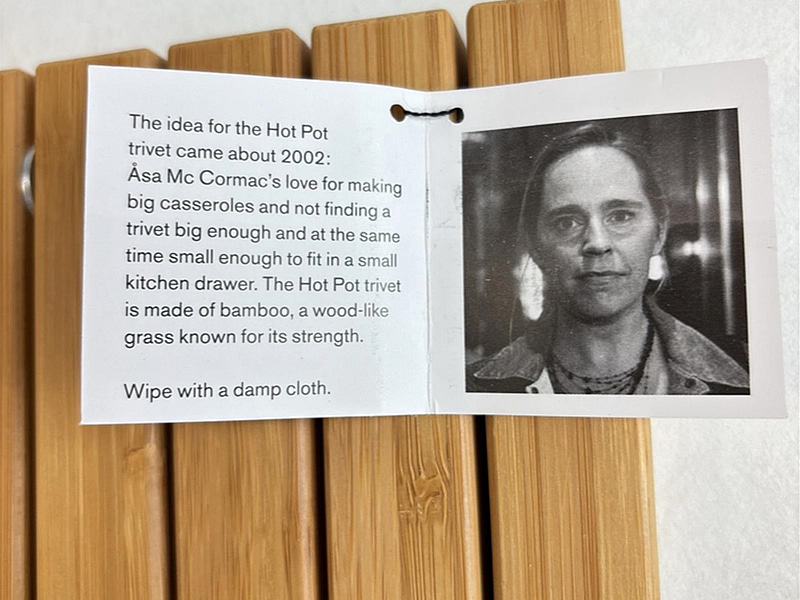 The idea for the Hot Pot
trivet came about 2002:
Åsa Mc Cormac's love for making
big casseroles and not finding a
trivet big enough and at the same
time small enough to fit in a small
kitchen drawer. The Hot Pot trivet
is made of bamboo, a wood-like
grass known for its strength.
Wipe with a damp cloth.